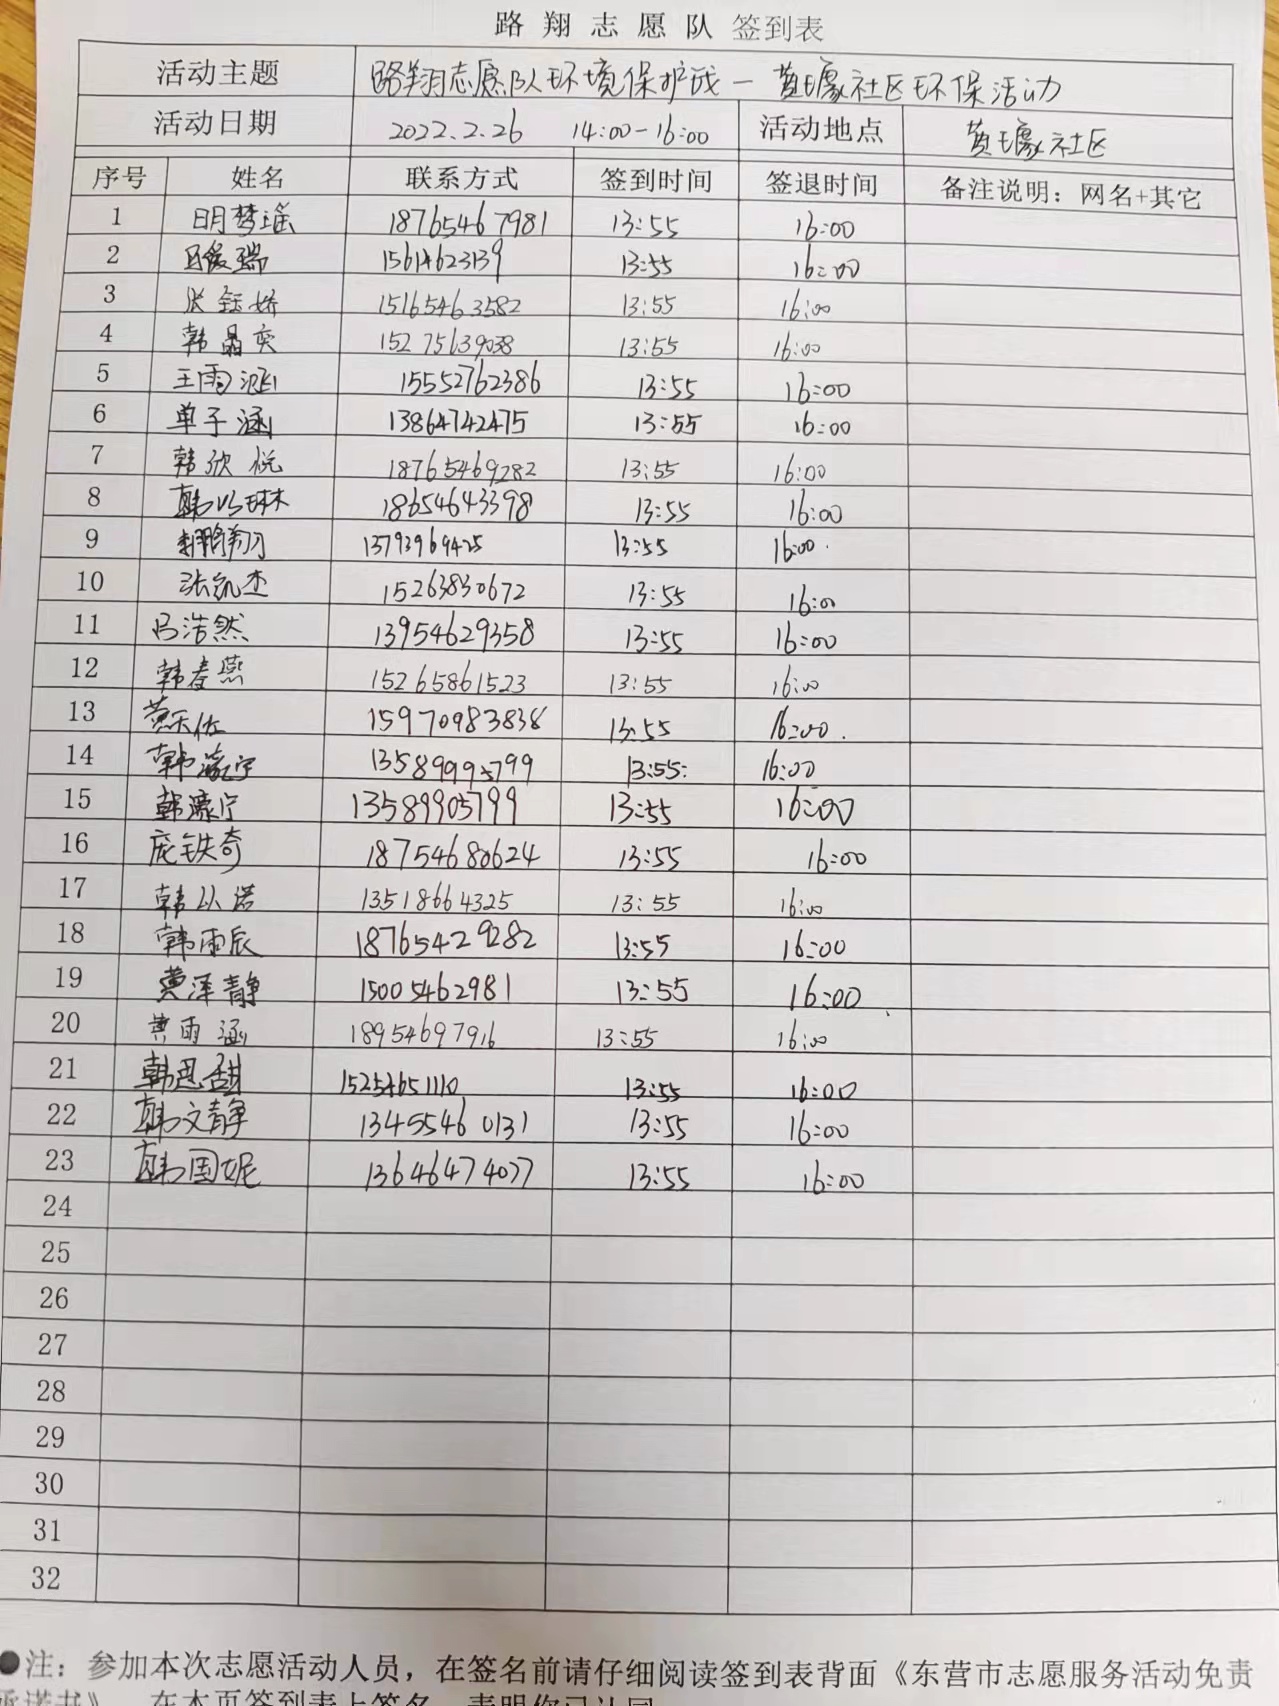 路翔志愿队 签到表
活动主题 路翔志愿队环境保护战—黄壕社区环保活动
活动日期 2022.2.26 14:00-16:00 活动地点 黄壕社区
序号 姓名 联系方式 签到时间 签退时间 备注说明：网名+其它
1 明梦瑶 18765467981 13:55 16:00
2 瑞 15614623139 13:55 16:00
3 张钰娇 15165463582 13:55 16:00
4 韩晶奕 15275639038 13:55 16:00
5 王雨涵 15552762386 13:55 16:00
6 单子涵 13864742475 13:55 16:00
7 韩欣悦 18765469282 13:55 16:00
8 韩以琳 18654643398 13:55 16:00
9 鹏翔 13793969425 13:55 16:00.
10 张凯杰 15263830672 13:55 16:00
11 冯浩然 13954629358 13:55 16:00
12 韩春燕 15265861523 13:55 16:00
13 黄乐佐 15970983838 13:55 16:00.
14 韩瀛宁 13589995799 13:55: 16:00
15 韩濠宁 13589905799 13:55 16:00
16 庞铁奇 18754680624 13:55 16:00
17 韩以诺 13518664325 13:55 16:00
18 韩雨辰 18765429282 13:55 16:00
19 黄泽静 15005462981 13:55 16:00
20 黄雨涵 18954697916 13:55 16:00
21 韩思甜 15254651110 13:55 16:00
22 韩文静 13455460131 13:55 16:00
23 韩国妮 13646474077 13:55 16:00
24
25
26
27
28
29
30
31
32
●注：参加本次志愿活动人员，在签名前请仔细阅读签到表背面《东营市志愿服务活动免责
承诺书》，在本页签到表上签名，表明您已认同